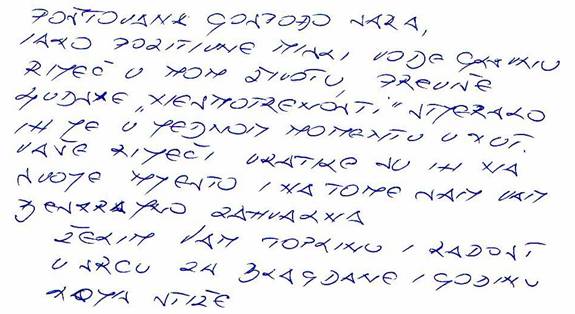 POŠTOVANA GOSPOĐO NADA,
IAKO POZITIVNE MISLI VODE GLAVNU
RIJEČ U MOM ŽIVOTU, PREVIŠE
LJUDSKE „NESMOTRENOSTI" STJERALO
IH JE U JEDNOM MOMENTU U KUT.
VAŠE RIJEČI VRATILE SU IH NA
SVOJE MJESTO I NA TOME SAM VAM
BESKRAJNO ZAHVALNA
ŽELIM VAM TOPLINU I RADOST
U SRCU ZA BLAGDANE I GODINU
KOJA STIŽE